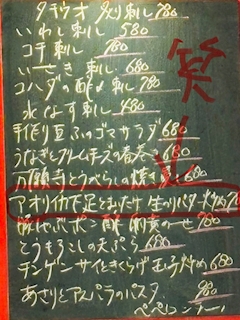 タチウオ 炙り刺し 780
いわし刺し 580
コチ刺し 780
いさき刺し 680
コハダの酢〆刺し 780
水なす刺し 480
手作り豆ふのゴマサラダ 680
うなぎとクリームチーズの春巻
万願寺とうがらしの焼き 680
アオリイカ下足とまいたけ 生のりバター炒め 78
とうもろこしの天ぷら 680
チンゲンサイときくらげ 玉子炒め 680
あさりとアスパラのパスタ 980
ペペロンチーノ